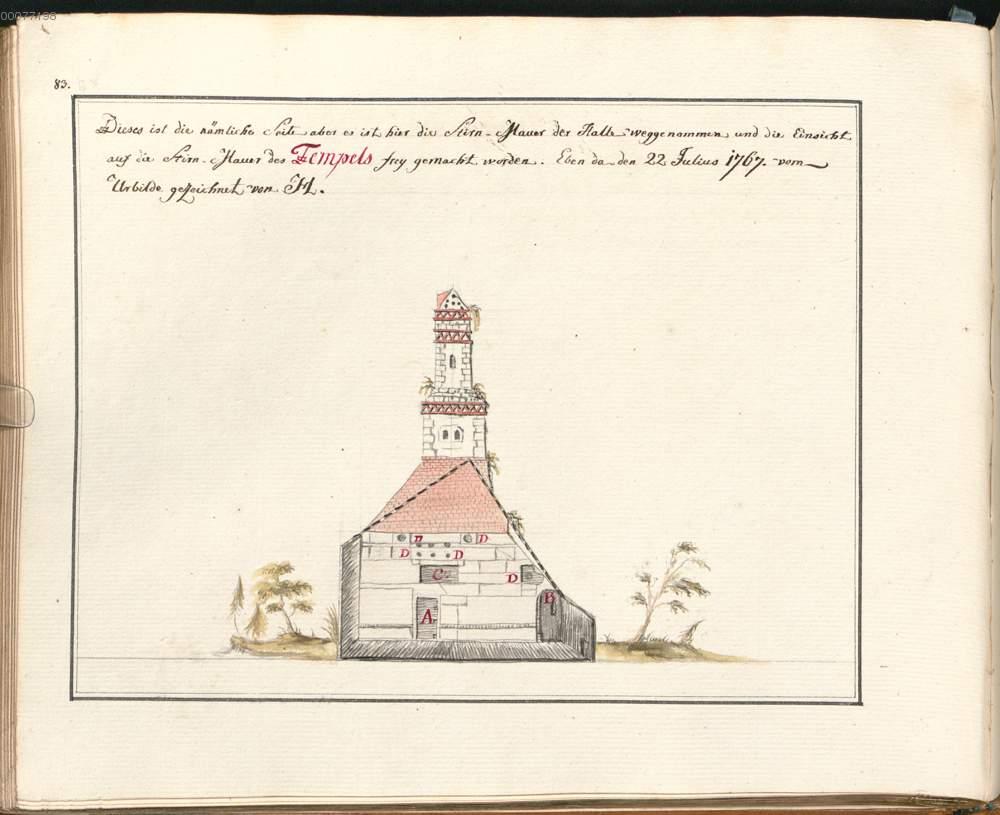 00077498
83.
Dieses ist die nämliche Seite aber es ist hier die Stirn-Mauer der Halle weggenommen und die Einsicht
auf die Stirn-Mauer des Tempels frey gemacht worden. Eben da den 22 Julius 1767. vom
Urbilde gezeichnet von H.
D D
D D
C D
B
A